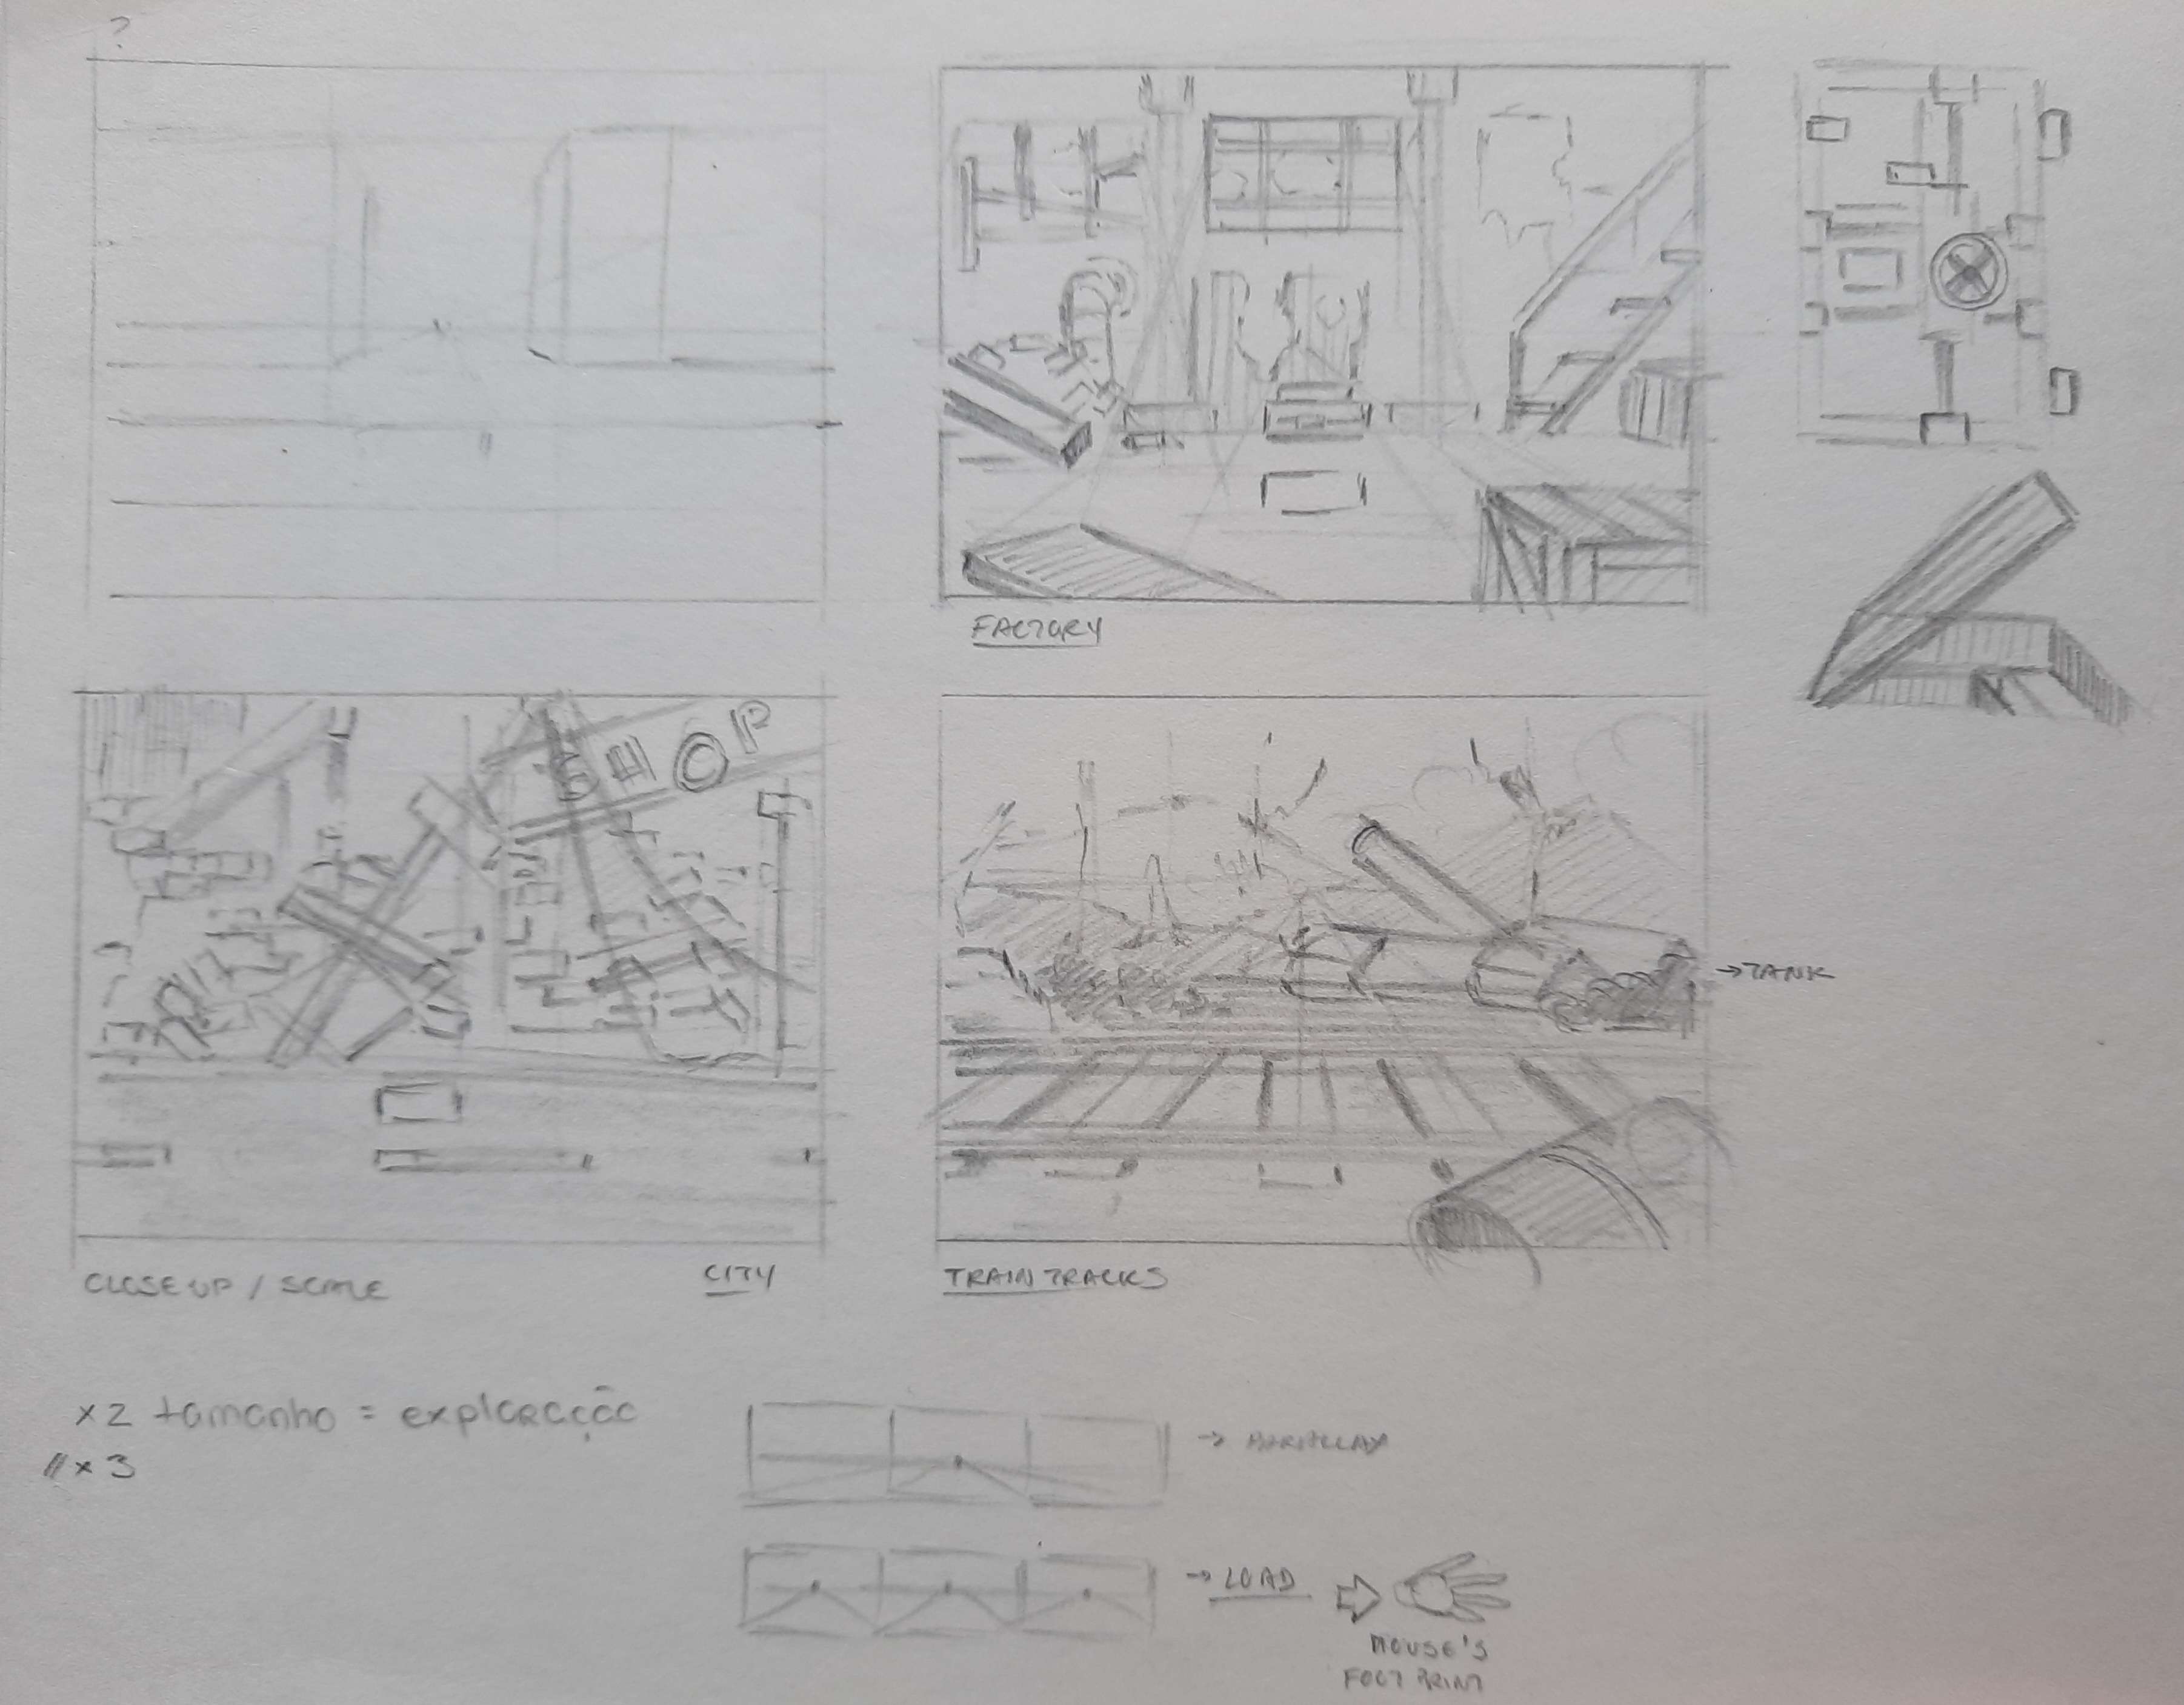 ?
FACTORY
SHOP
→TANK
CLOSE UP / SCALE
CITY
TRAIN TRACKS
x2 tamanho = exploração
//x3
→ PARALLAX
→ LOAD
MOUSE'S
FOOT PRINT